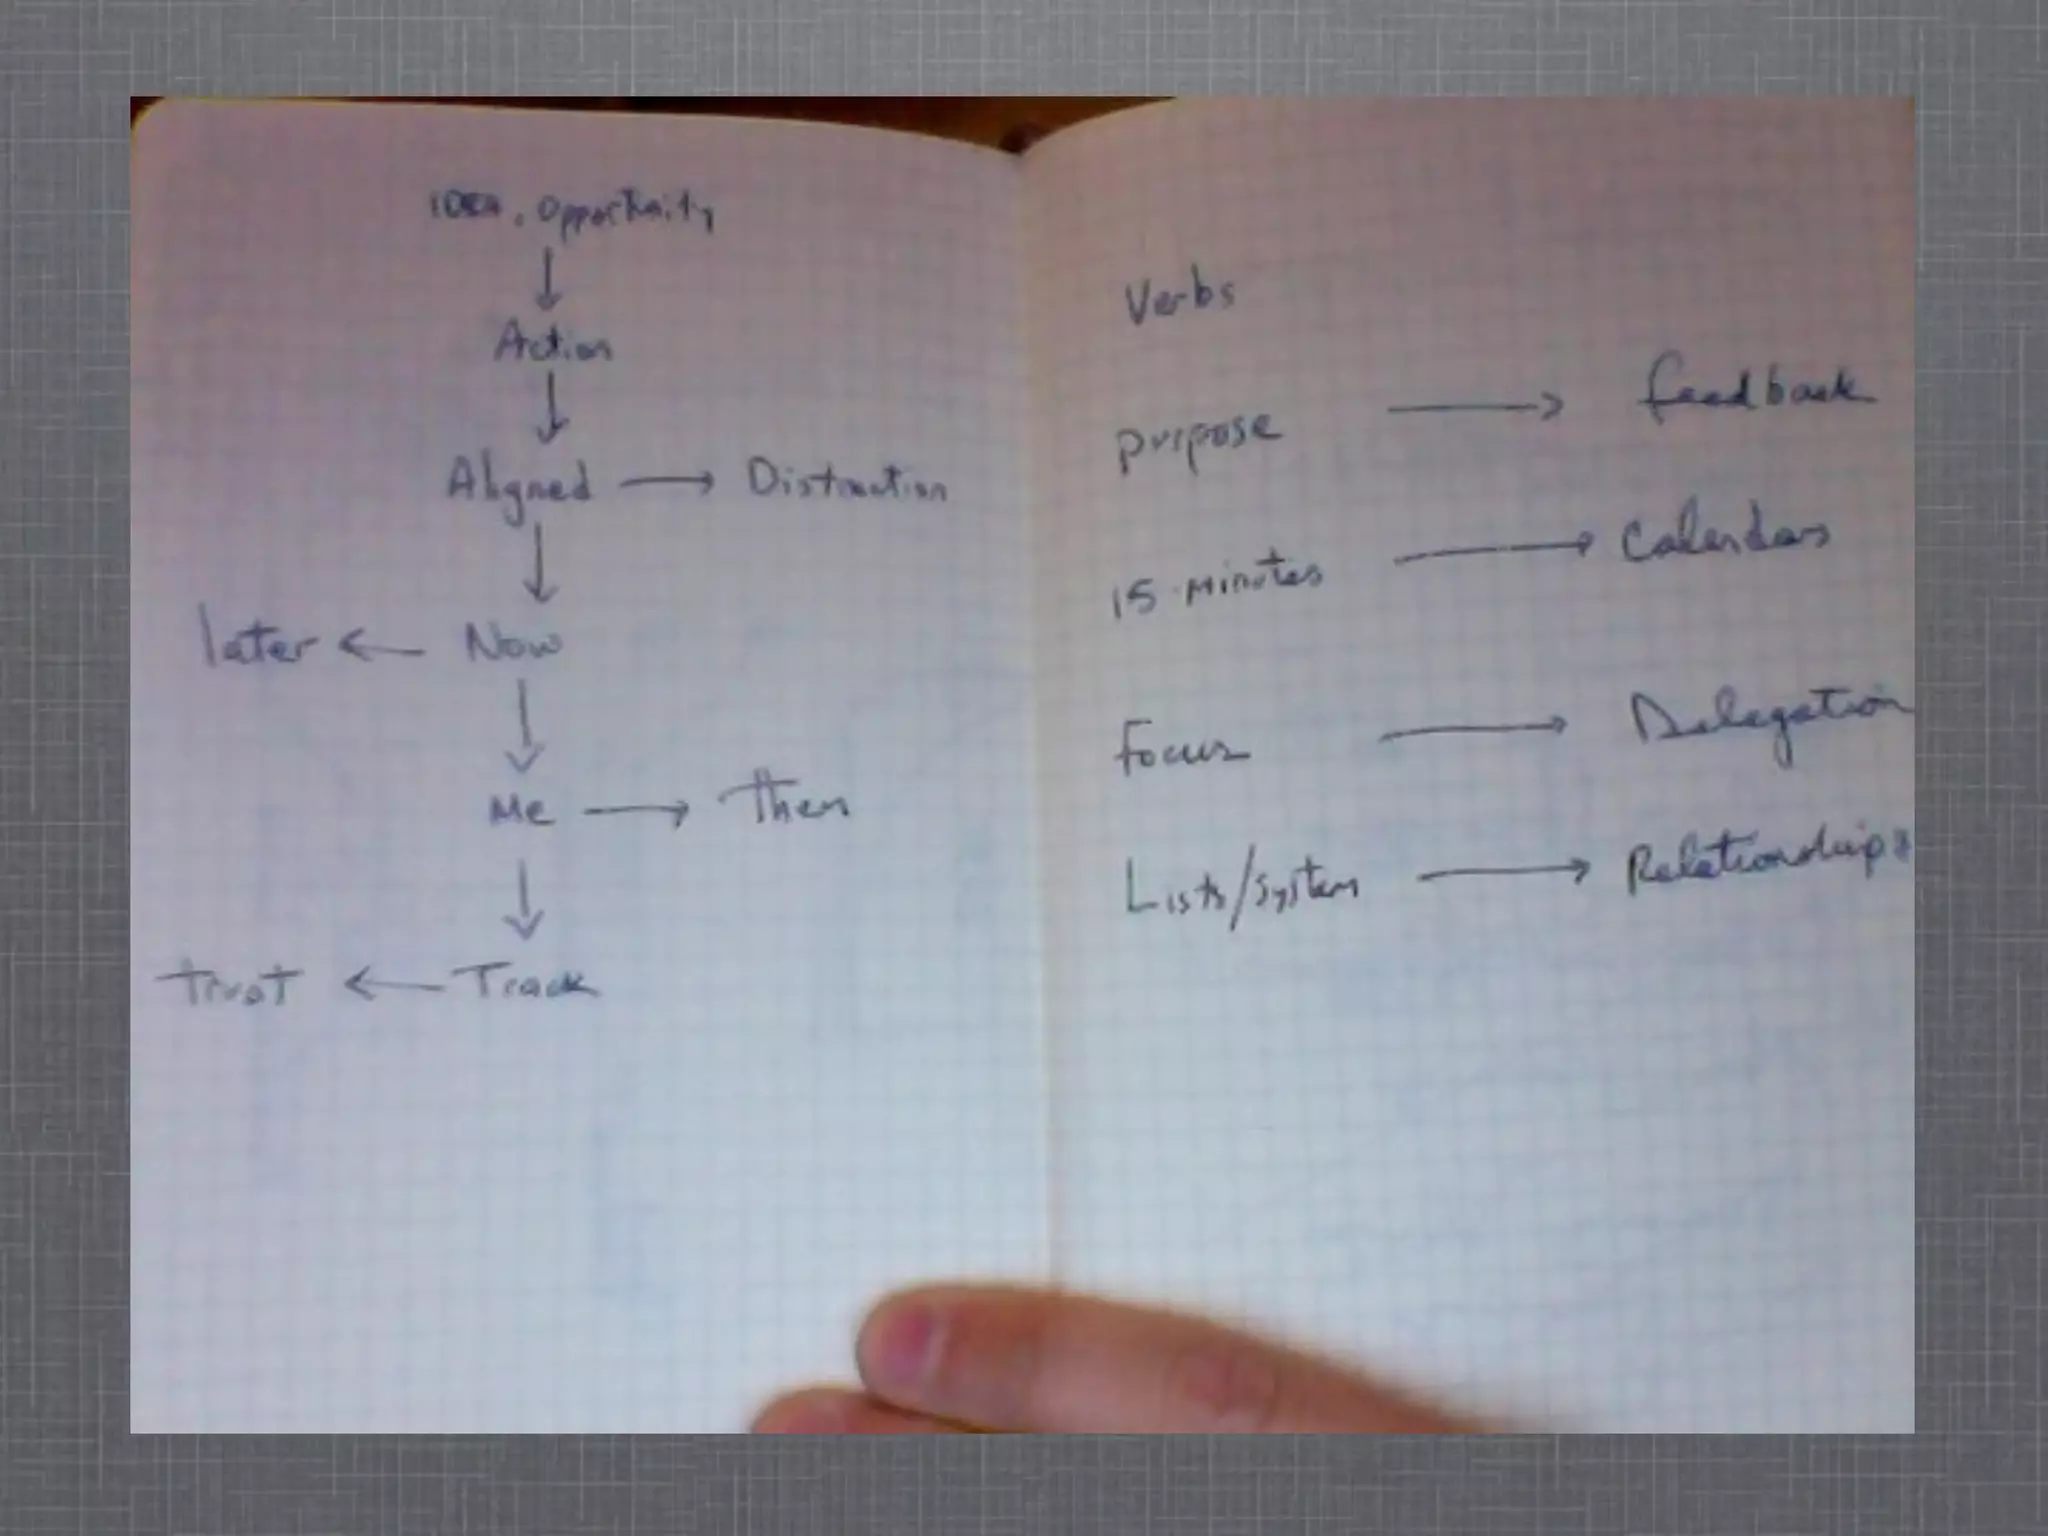 IDEA. Opportunity
Action
Aligned → Distraction
later ← Now
Me → Them
Trust ← Track
Verbs
purpose → feedback
15 minutes → Calendars
Focus → Delegation
Lists/System → Relationships